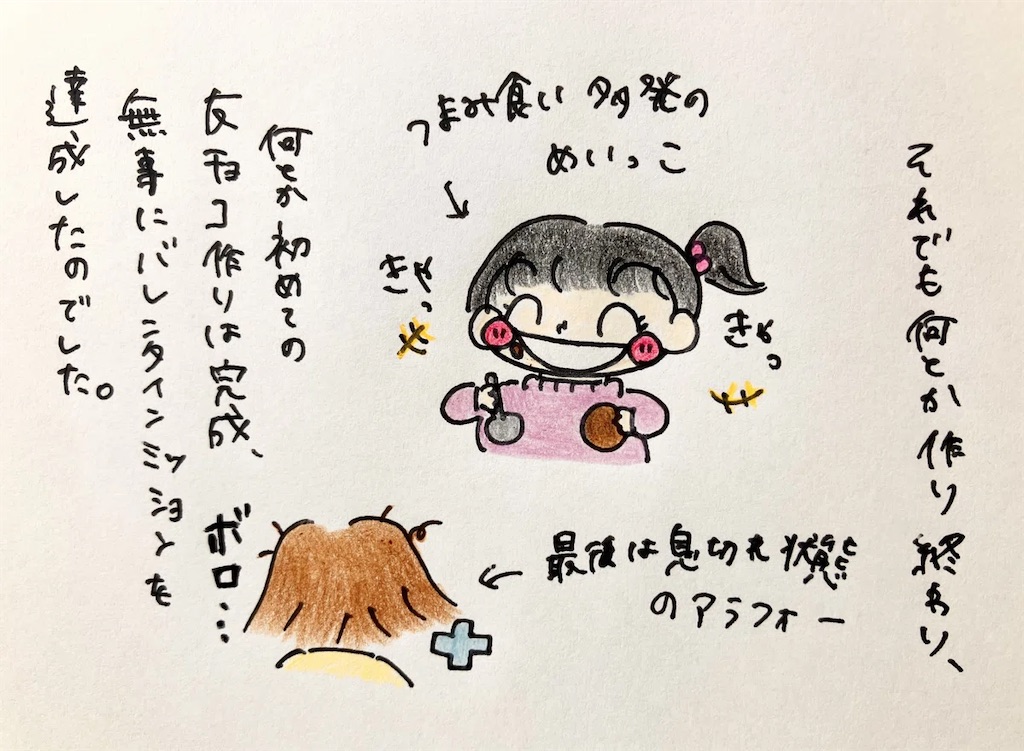 それでも何とか作り終わり、
つまみ食い多発の
めいっこ
きゃっ
きゃっ
最後は息切れ状態
のアラフォー
ボロ…
何とか初めての
友チョコ作りは完成、
無事にバレンタインミッションを
達成したのでした。